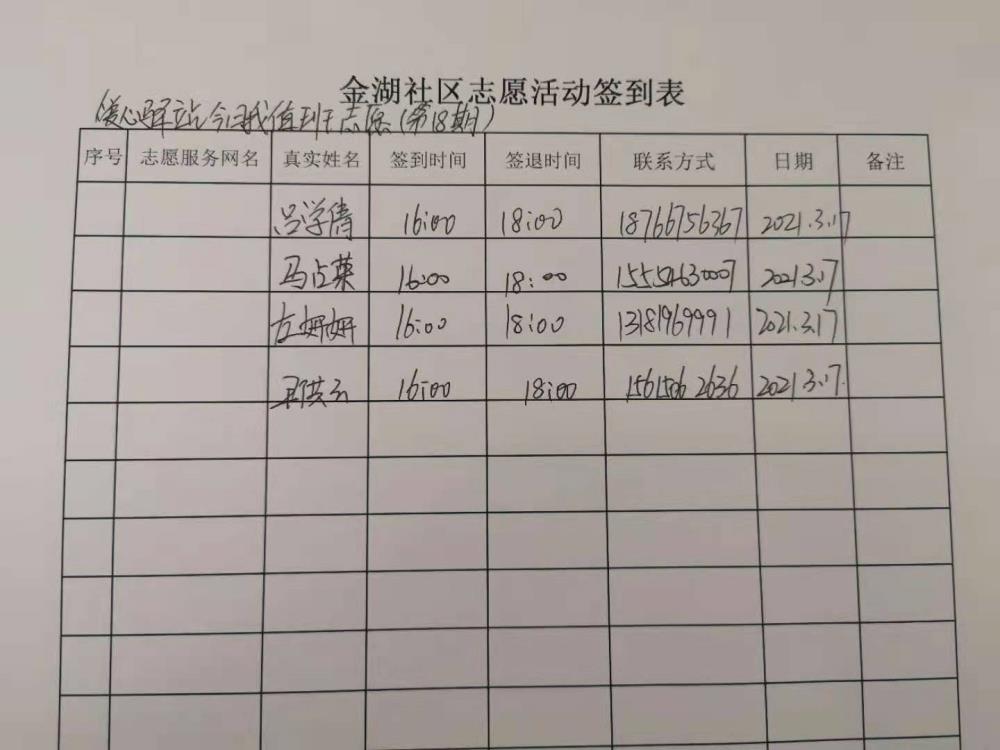 金湖社区志愿活动签到表
暖心驿站今日我值班志愿(第18期)
序号 志愿服务网名 真实姓名 签到时间 签退时间 联系方式 日期 备注
吕学倩 16:00 18:00 18766756367 2021.3.17
马占英 16:00 18:00 15554630007 2021.3.17
左姗姗 16:00 18:00 13181969991 2021.3.17
16:00 18:00 2021.3.17.